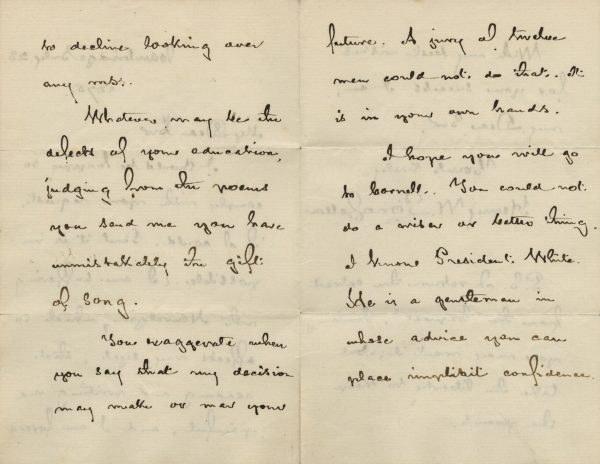 to decline looking over
any mss.
Whatever may be the
defects of your education,
judging from the poems
you send me you have
unmistakably the gift
of song.
You exaggerate when
you say that my decision
may make or mar your
future. A jury of twelve
men could not do that. It
is in your own hands.
I hope you will go
to Cornell. You could not
do a wiser or better thing.
I know President White.
He is a gentleman in
whose advice you can
place implikit confidence.